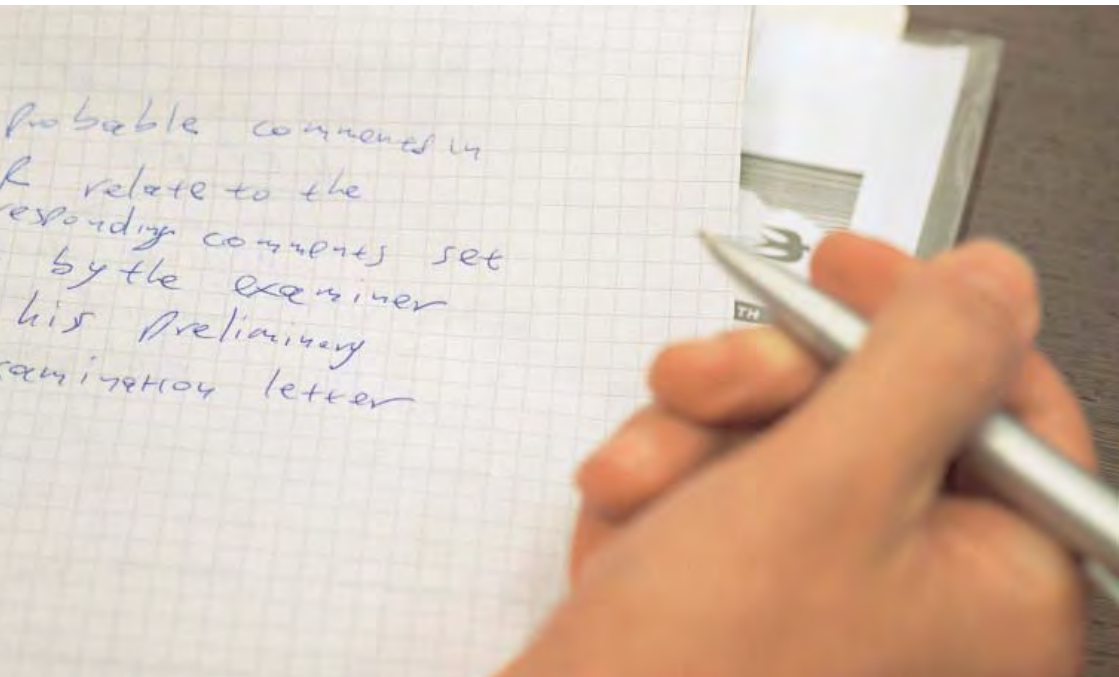 Probable comments in
R relate to the
responding comments set
by the examiner
his preliminary
amination letter
TH